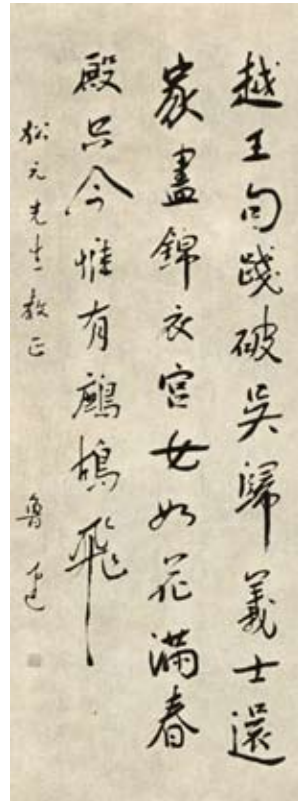 越王句踐破吳歸義士還
家盡錦衣宮女如花滿春
殿只今惟有鷓鴣飛
松元先生教正
魯迅